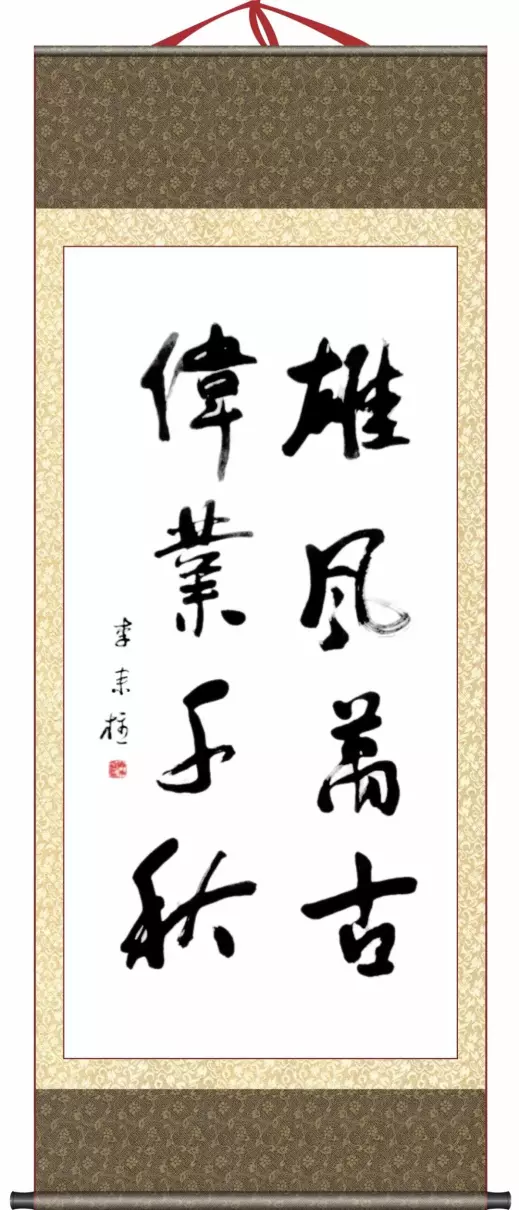 雄風萬古
偉業千秋
李来柱